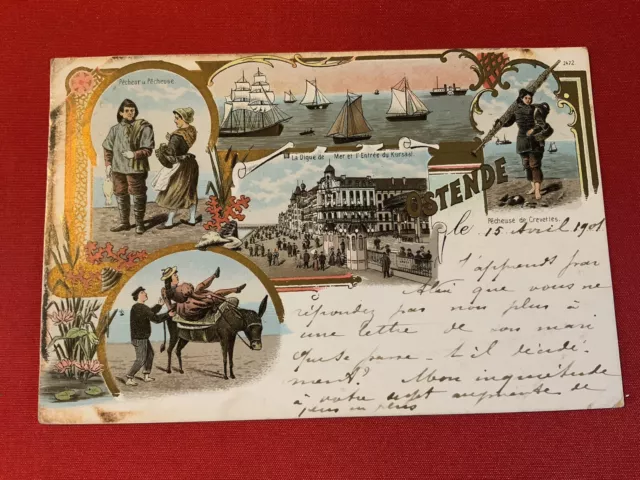 Pêcheur et Pêcheuse
2472.
La Digue de Mer et l'Entrée du Kursaal
OSTENDE
Pêcheuse de Crevettes.
le 15 Avril 1901
J'apprends par
que vous ne
répondez pas non plus à
une lettre de son mari
Que se passe-t-il décidé-
ment? Mon inquiétude
à votre sujet augmente de
plus en plus